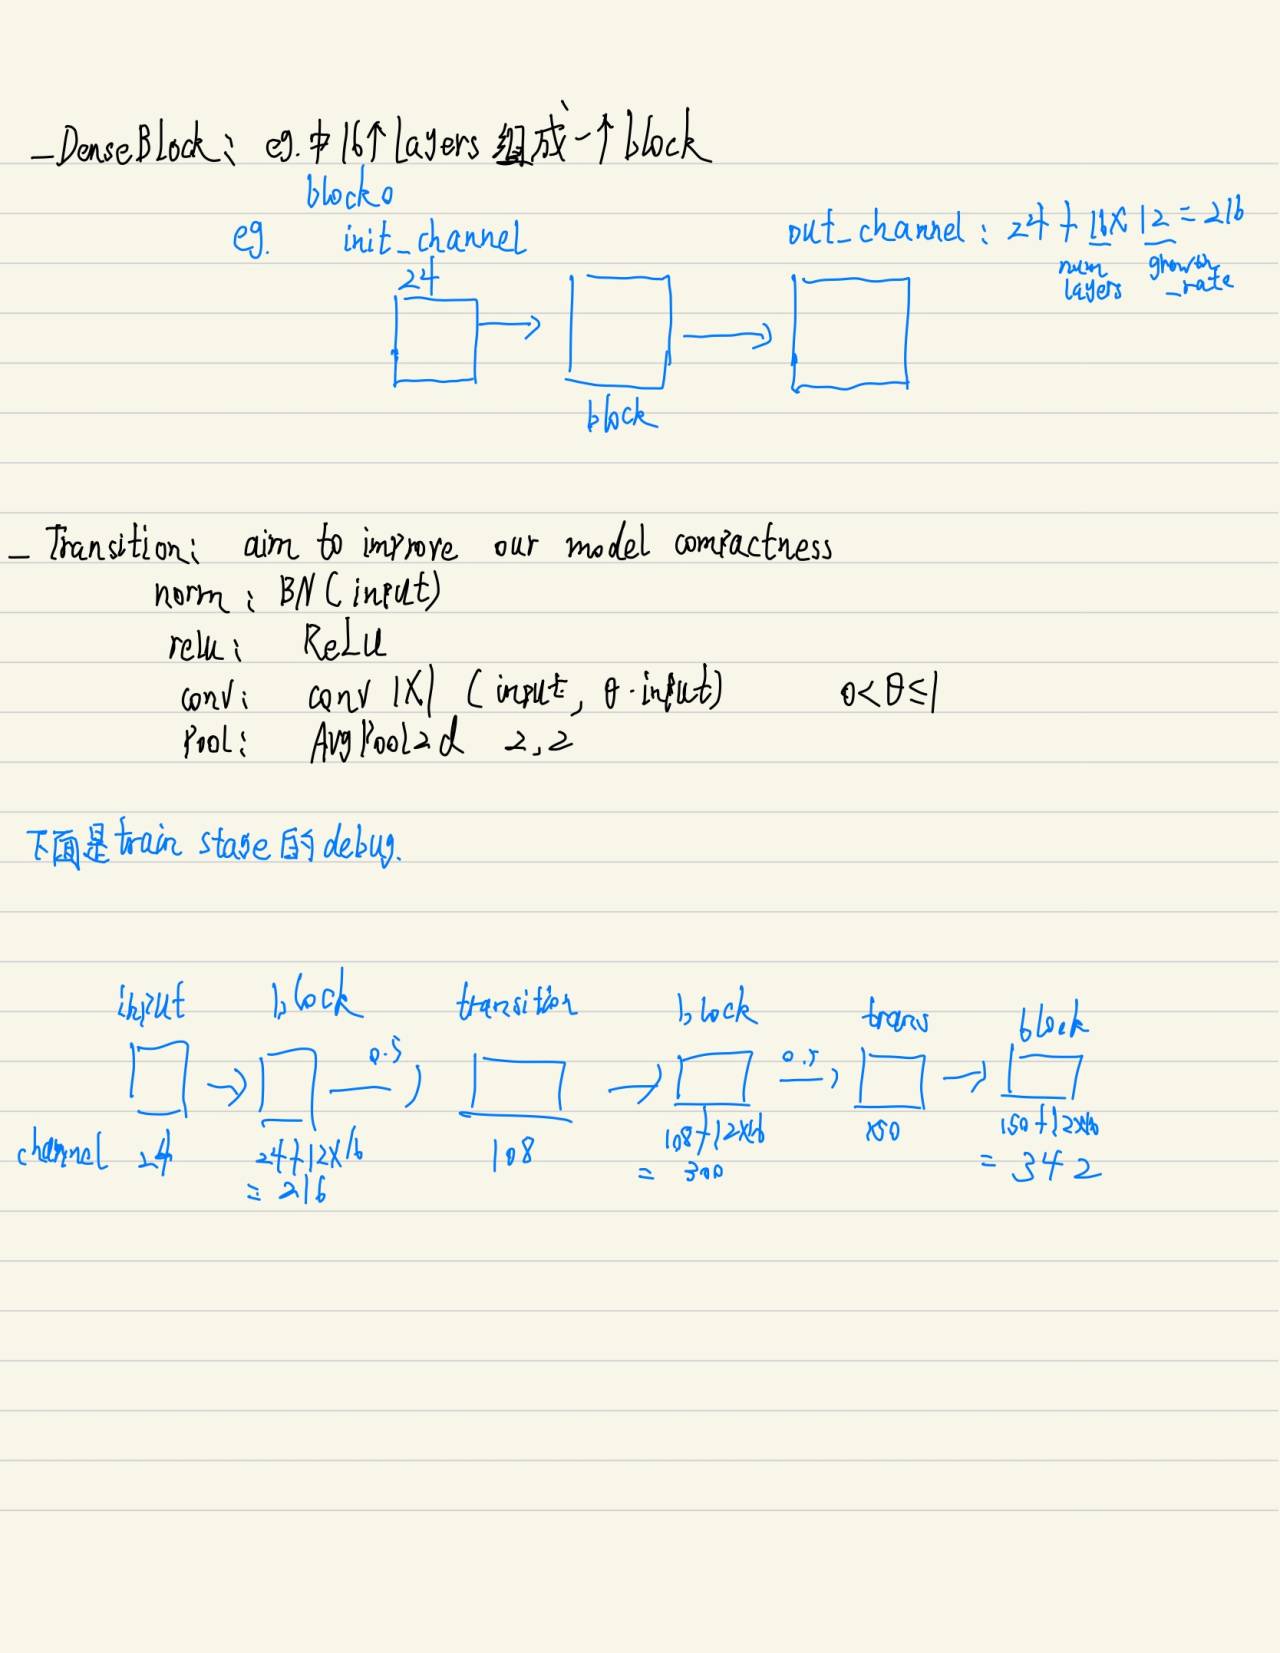 _DenseBlock: eg.中16个layers 组成一个block
block0
eg. init_channel out_channel: 24 + 16 × 12 = 216
24 num layers growth _rate
block
_ Transition: aim to improve our model compactness
norm: BN (input)
relu: ReLU
conv: conv 1×1 (input, θ·input) 0<θ≤1
Pool: AvgPool2d 2,2
下面是train stage 的debug.
input block transition block trans block
0.5 0.5
channel 24 24+12×16 108 108+12×16 150 150+12×16
= 216 = 300 = 342